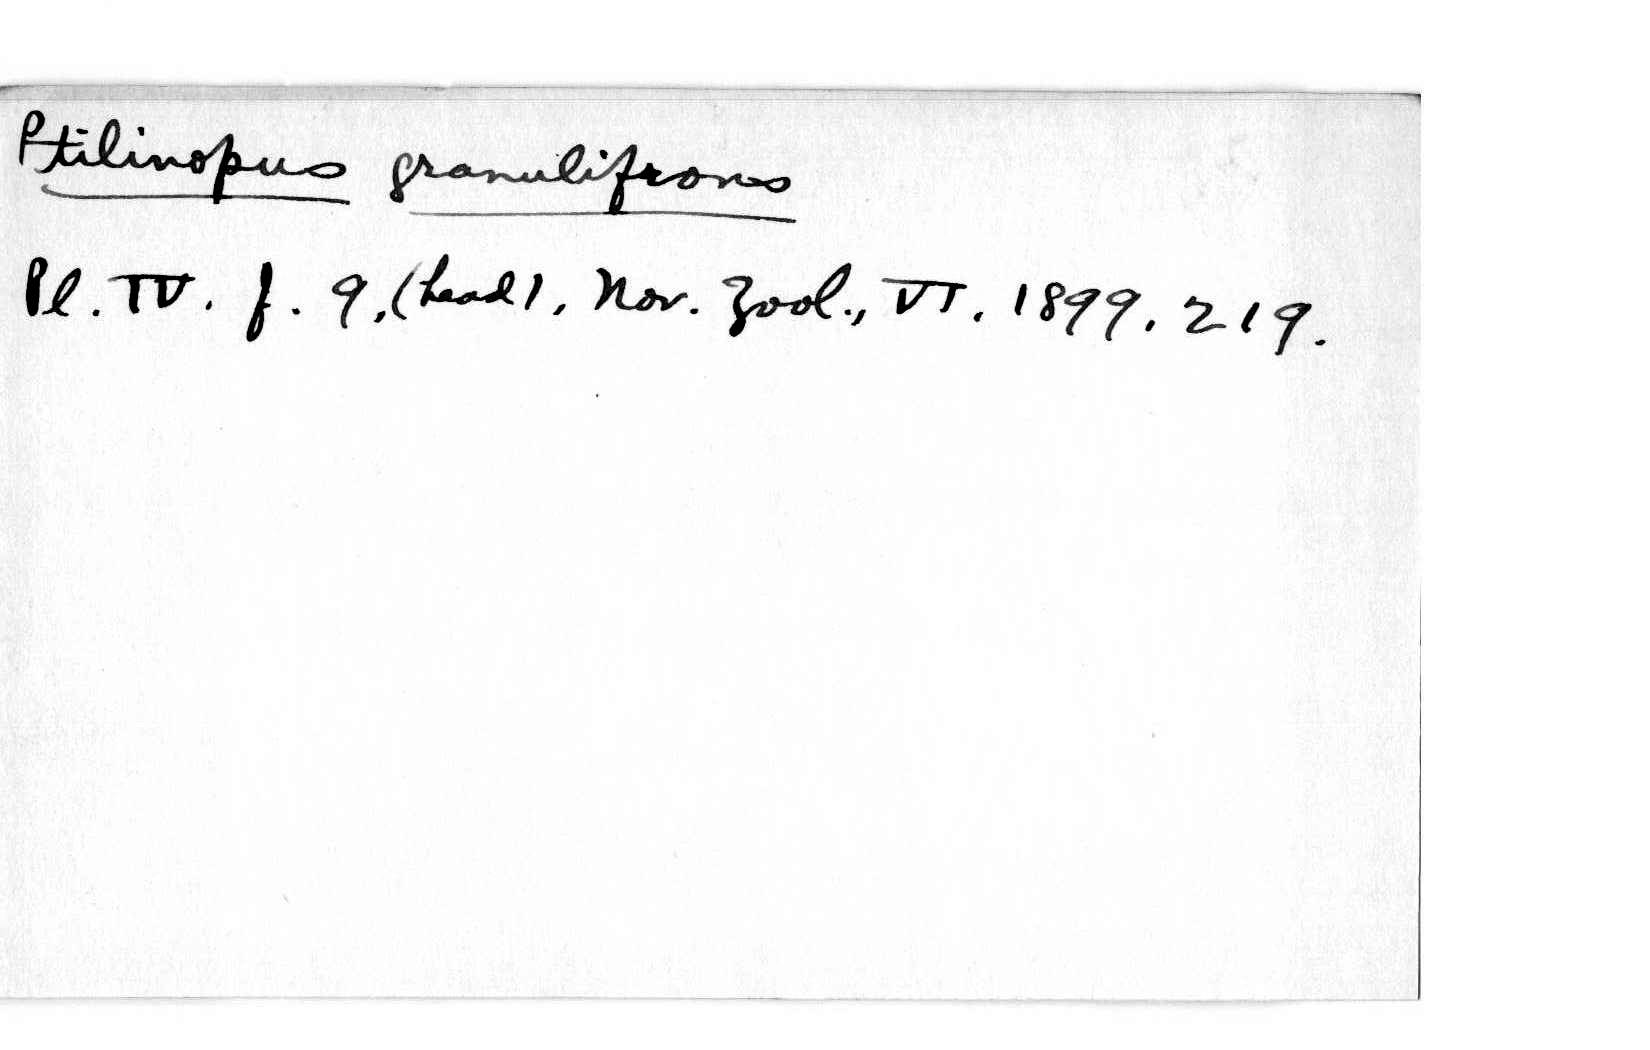 Ptilinopus granulifrons
Pl. IV. f. 9, (head), Nov. Zool., VI. 1899. 219.